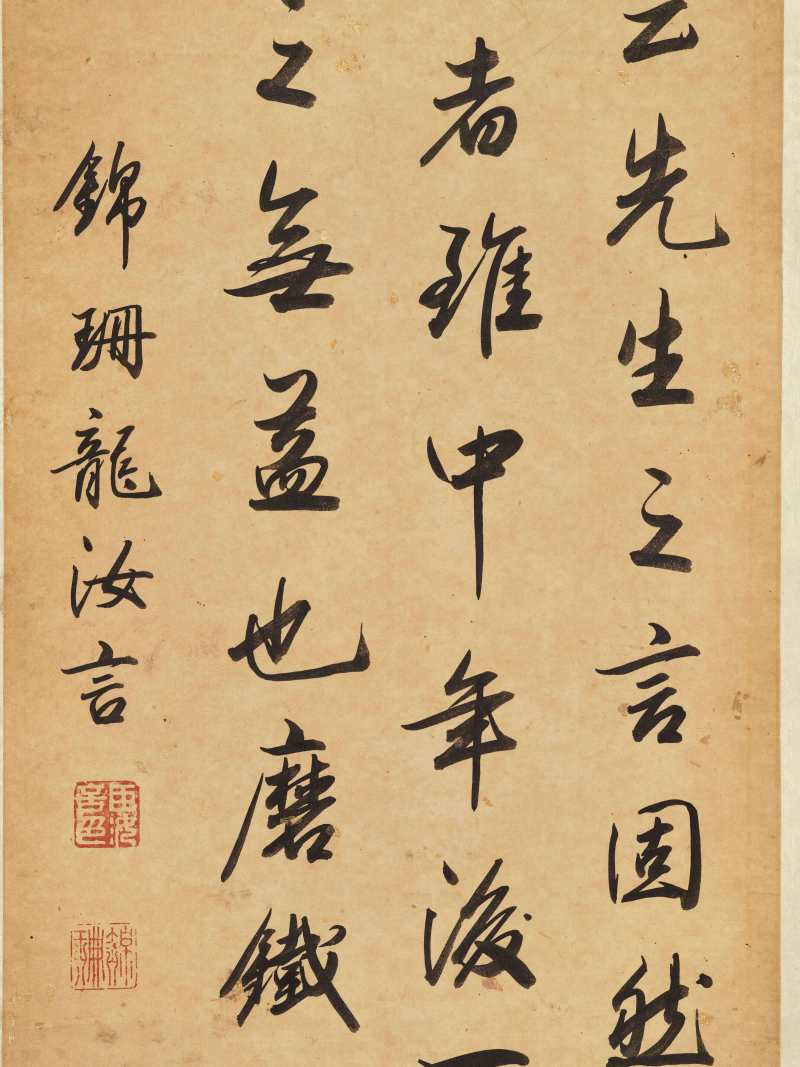 先生之言固然
者雖中年後
之無益也磨鐵
錦珊龍汝言